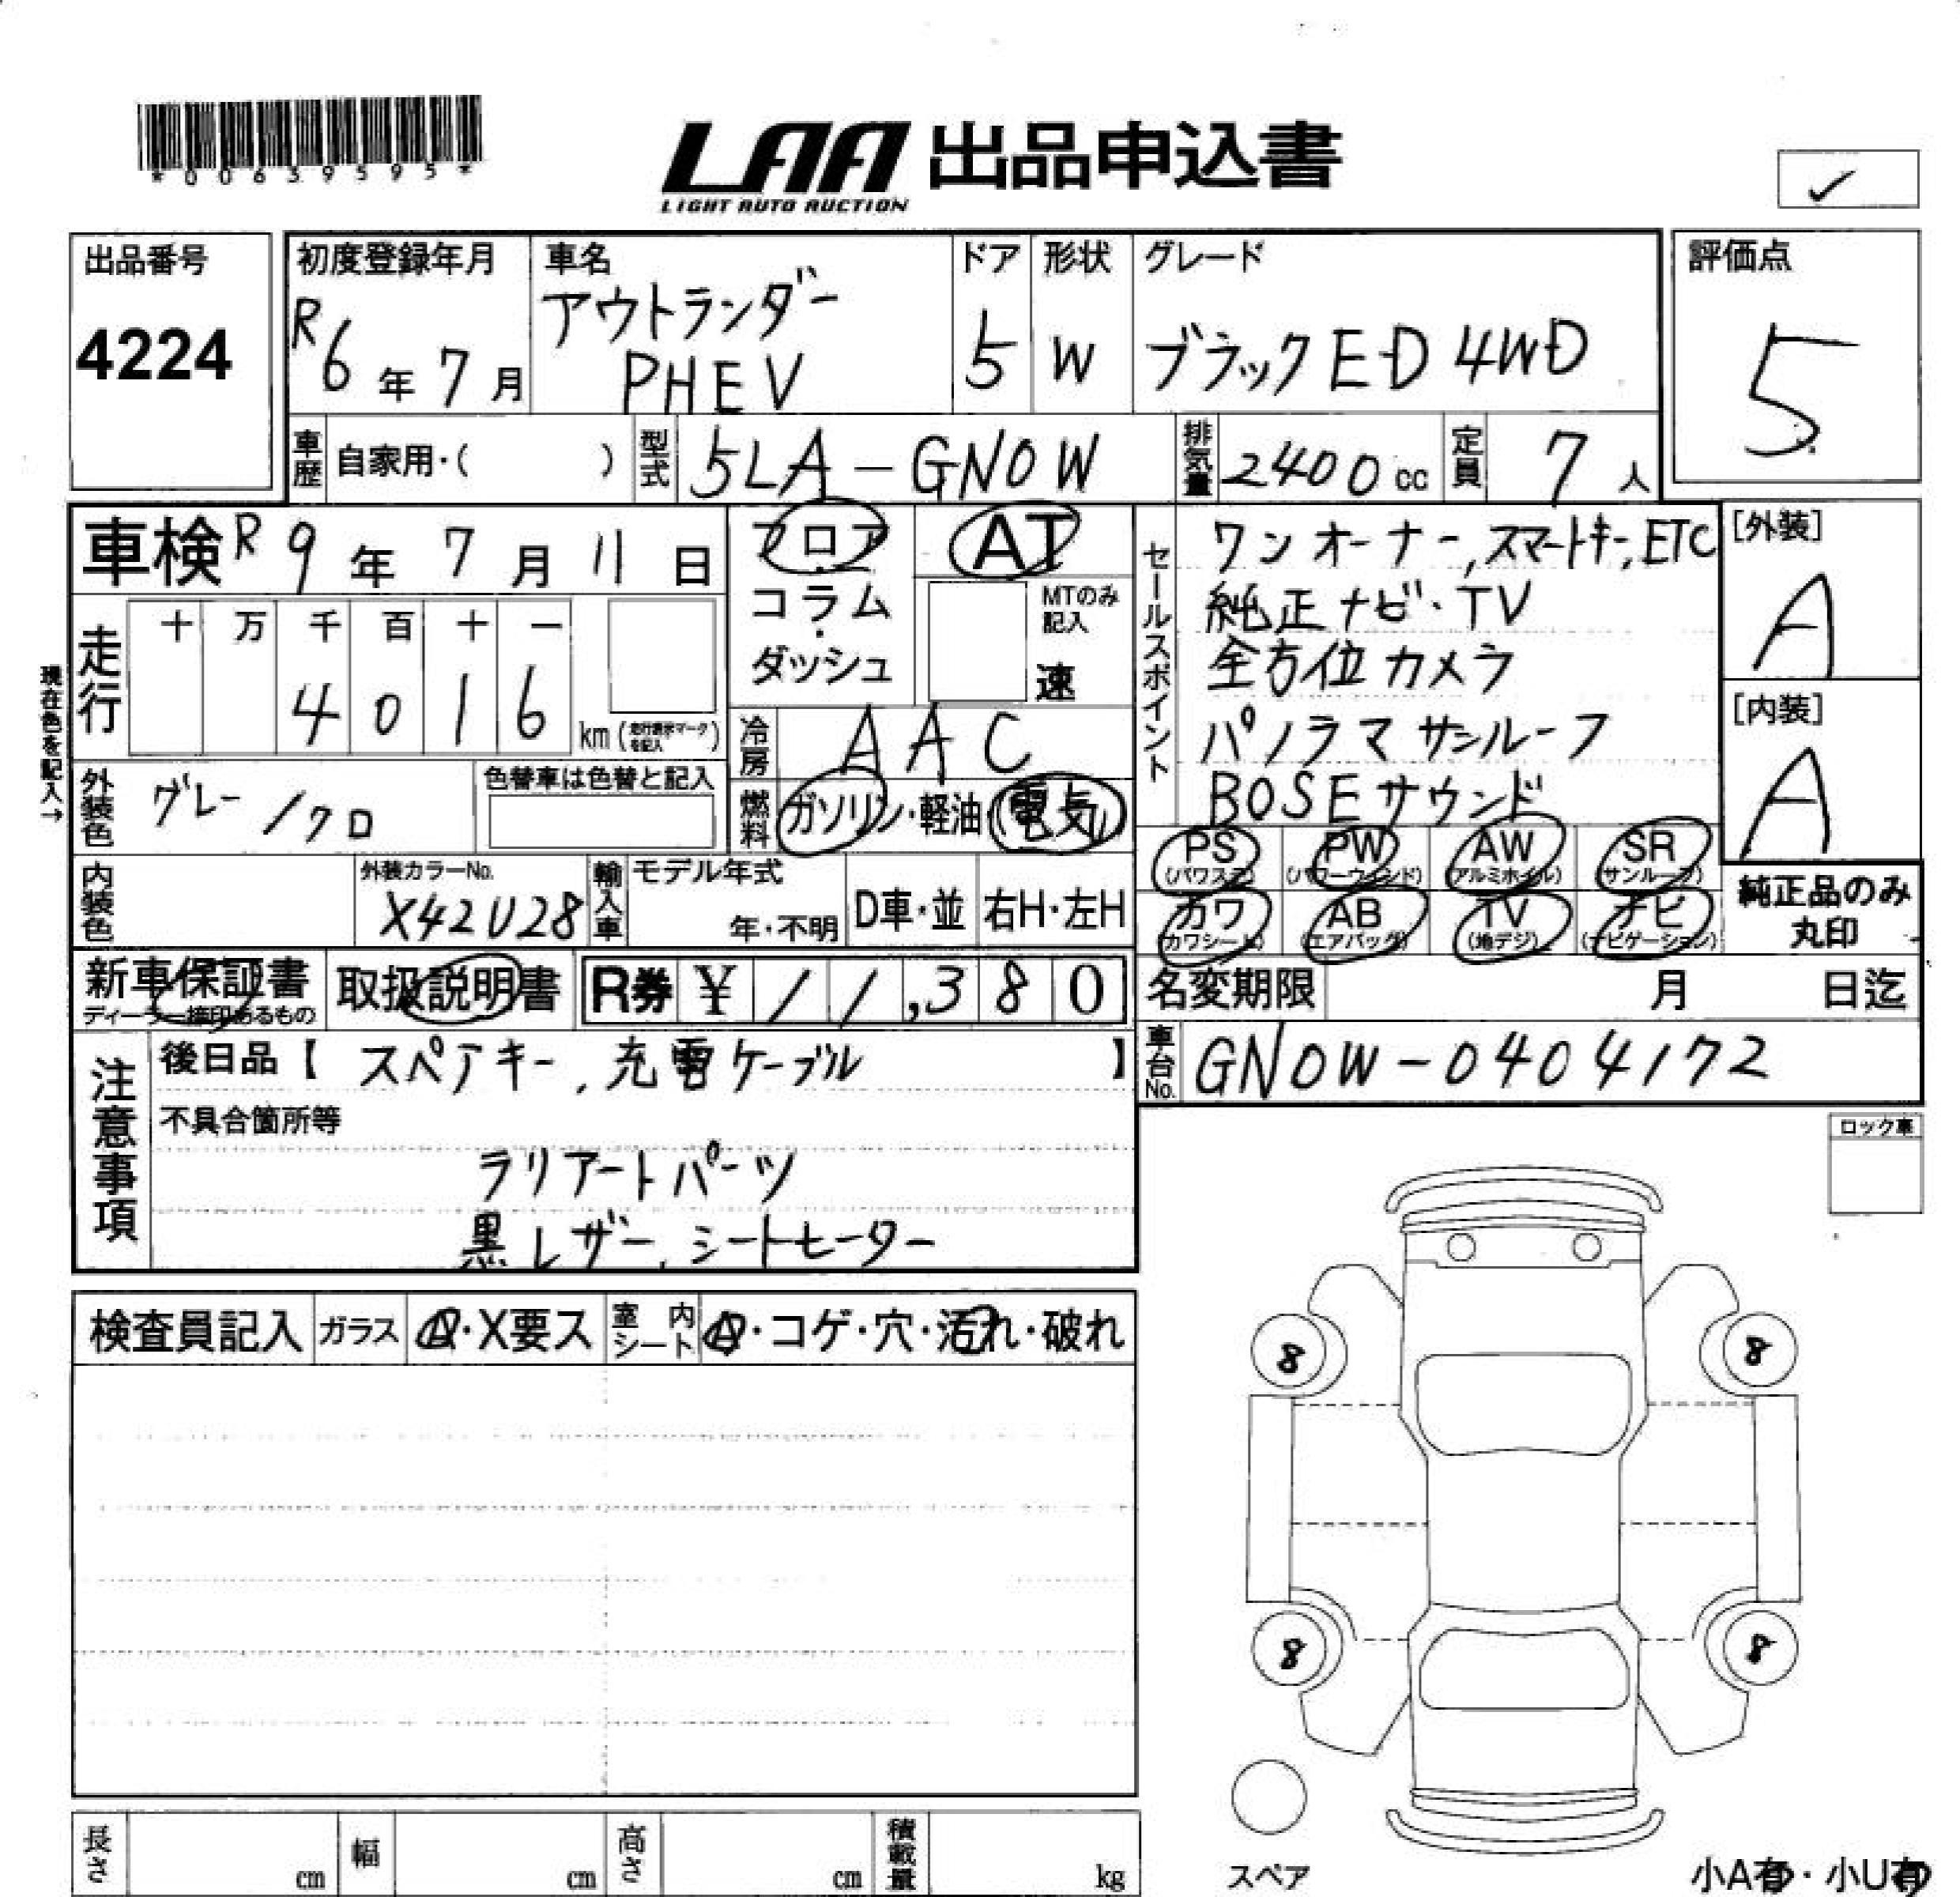 *00639595*
LAA 出品申込書
LIGHT AUTO AUCTION
✓
出品番号
4224
初度登録年月
R6年7月
車名
アウトランダー
PHEV
ドア
5
形状
W
グレード
ブラックED 4WD
評価点
5
車歴 自家用・( )
型式 5LA-GN0W
排気量 2400cc
定員 7人
車検 R9年7月11日
走行 十 万 千 百 十 一
4 0 1 6 km(走行表示マークを記入)
現在色を記入→
外装色 グレー/クロ
色替車は色替と記入
内装色
外装カラーNo.
X42U28
輸入車 モデル年式
年・不明
D車・並
右H・左H
フロア
コラム
・
ダッシュ
AT
MTのみ記入
速
冷房 AAC
燃料 ガソリン・軽油・(電気)
セールスポイント
ワンオーナー,スマートキー,ETC
純正ナビ・TV
全方位カメラ
パノラマサンルーフ
BOSEサウンド
[外装]
A
[内装]
A
PS (パワステ)
PW (パワーウィンド)
AW (アルミホイル)
SR (サンルーフ)
カワ (カワシート)
AB (エアバッグ)
TV (地デジ)
ナビ (ナビゲーション)
純正品のみ
丸印
新車保証書
ディーラー捺印あるもの
取扱説明書
R券 ¥11,380
名変期限 月 日迄
車台No. GN0W-0404172
注意事項
後日品【 スペアキー,充電ケーブル 】
不具合箇所等
ラリアートパーツ
黒レザー,シートヒーター
ロック車
検査員記入
ガラス A・X要ス
室内シート A・コゲ・穴・汚れ・破れ
8
8
8
8
スペア
長さ cm
幅 cm
高さ cm
積載量 kg
小A有・小U有